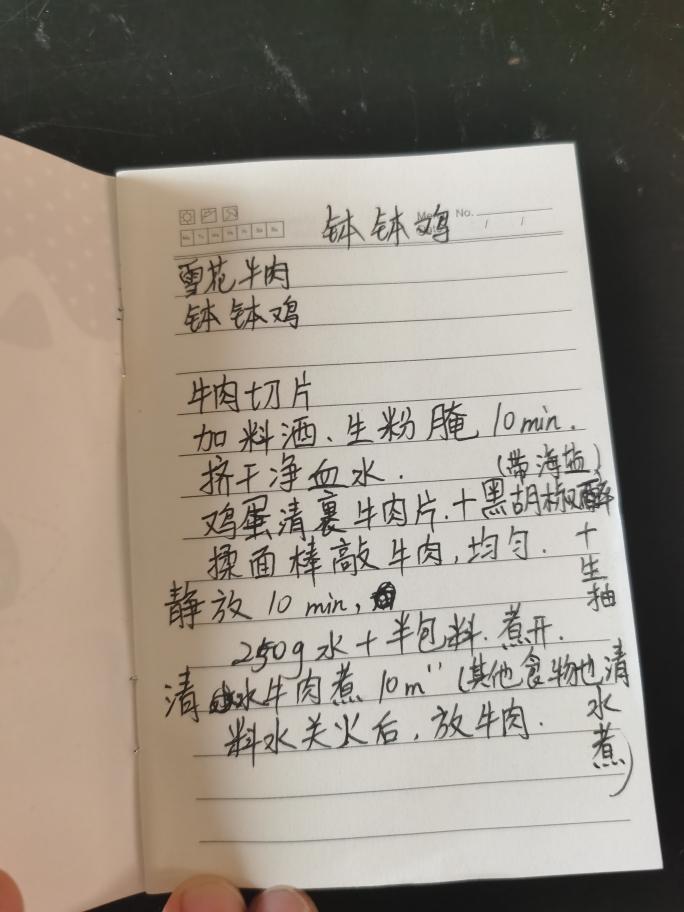 Me No.
/ /
钵钵鸡
雪花牛肉
钵钵鸡
牛肉切片
加料酒、生粉腌 10min.
挤干净血水. (带海盐)
鸡蛋清裹牛肉片.+黑胡椒碎
揉面棒敲牛肉,均匀. +生抽
静放 10 min,
250g 水+半包料.煮开.
清水牛肉煮 10m'' (其他食物也清水煮)
料水关火后,放牛肉.